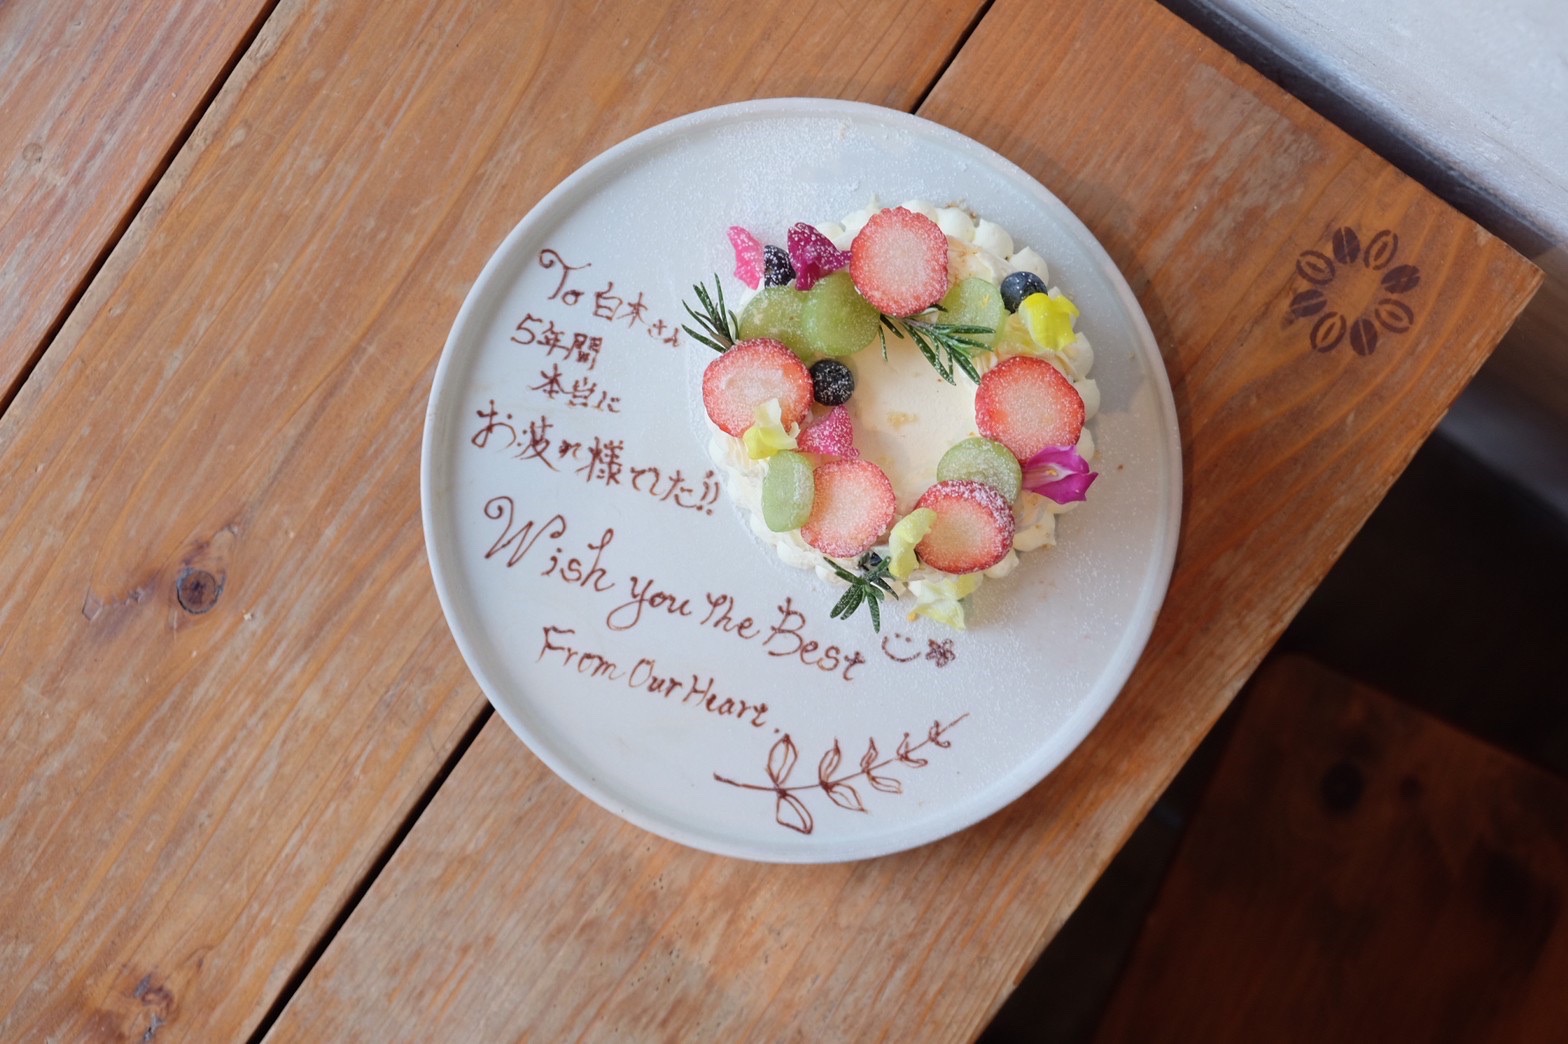 To 白木さん
5年間
本当に
お疲れ様でした!!
Wish you The Best
From Our Heart.